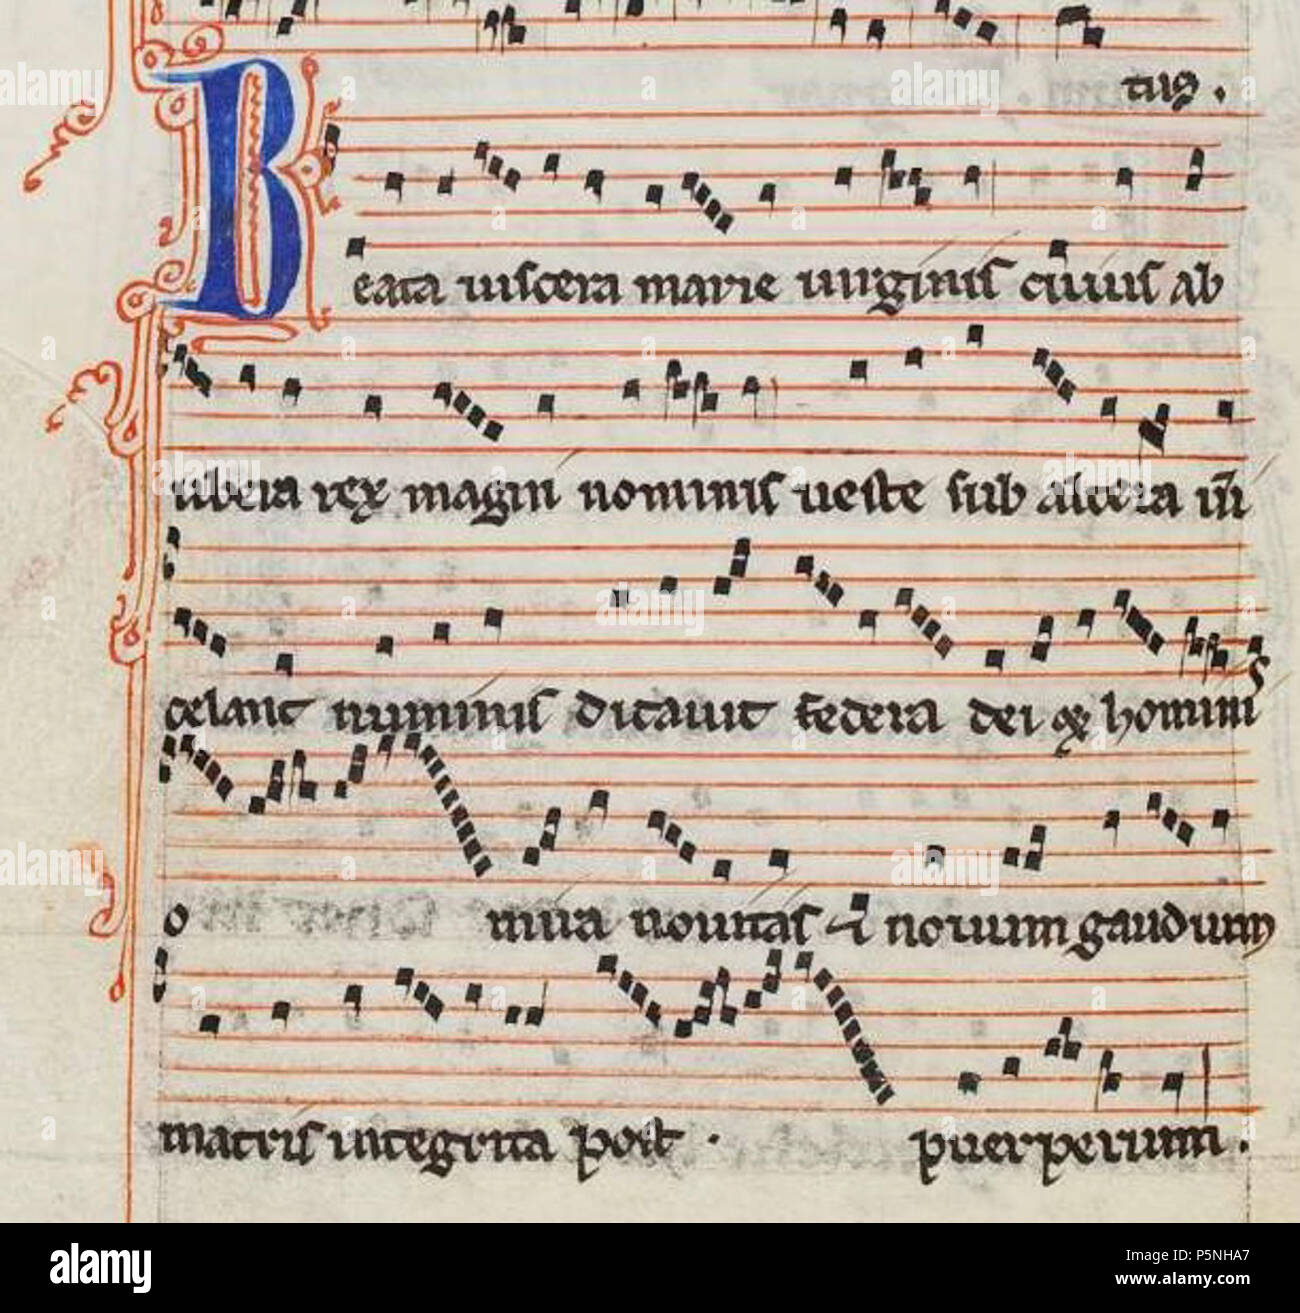 tus.
Beata viscera marie virginis cuius ab
ubera rex magni nominis veste sub altera vim
celans numinis dictavit federa dei & hominis
o mira novitas & novum gaudium
matris integrita post. puerperium.
alamy
Image ID: P5NHA7
www.alamy.com